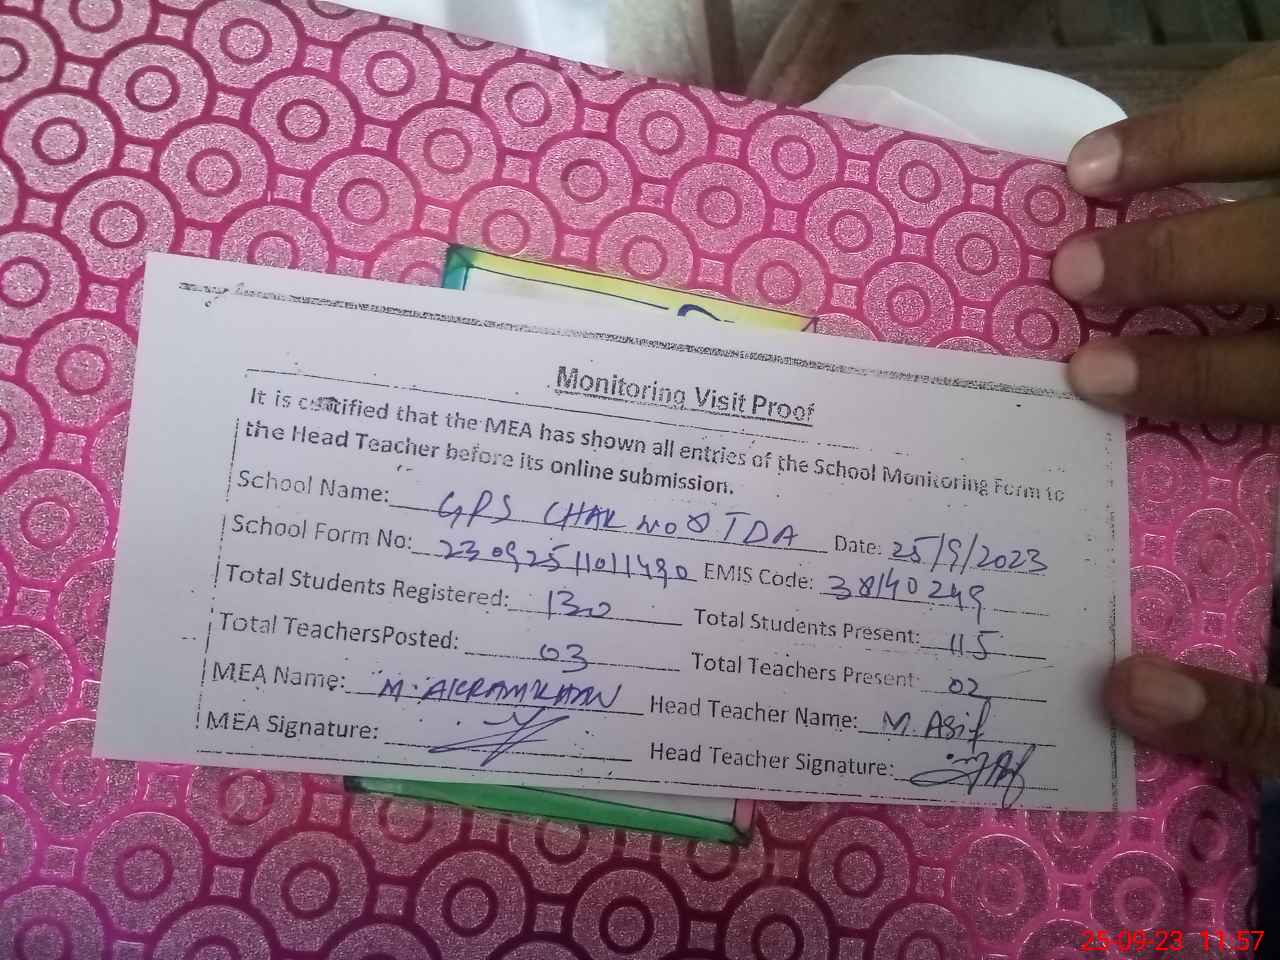 Monitoring Visit Proof
It is certified that the MEA has shown all entries of the School Monitoring Form to
the Head Teacher before its online submission.
School Name: GPS CHAK NO 8 TDA Date: 25/9/2023
School Form No: 23092511011490 EMIS Code: 38140249
Total Students Registered: 130 Total Students Present: 115
Total TeachersPosted: 03 Total Teachers Present: 02
MEA Name: M. AKRAM KHAN Head Teacher Name: M. Asif
MEA Signature: Head Teacher Signature:
25-09-23 11:57